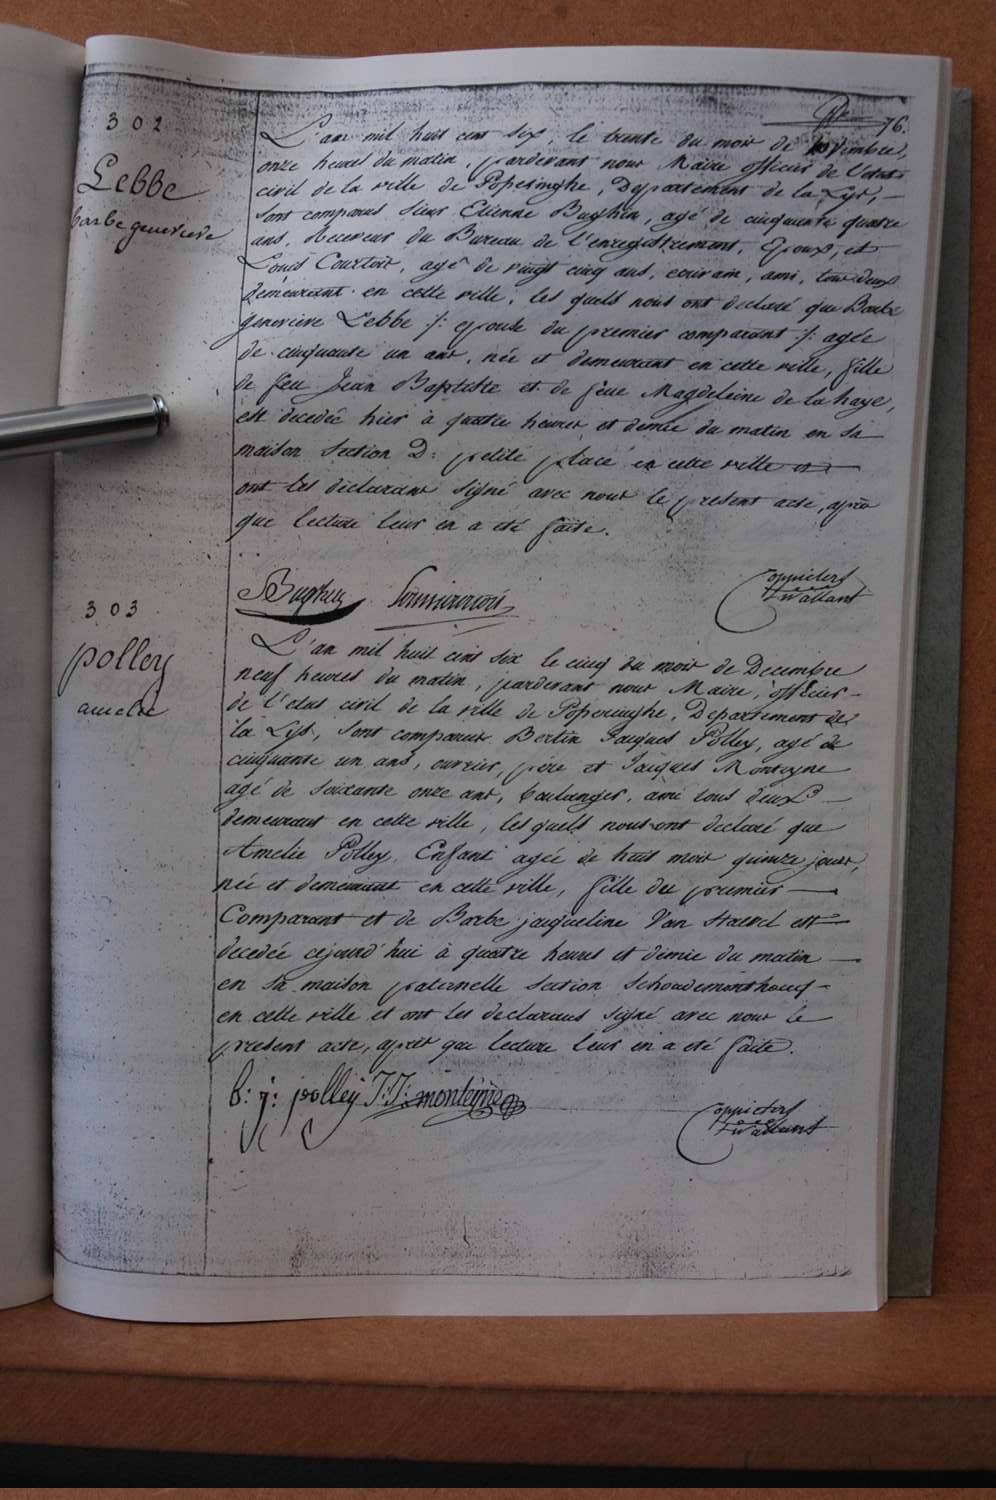 76.
302
Lebbe
barbe genevieve
L'an mil huit cent six, le trente du mois de Novembre,
onze heures du matin, pardevant nous Maire officier de l'etat
civil de la ville de Poperinghe, Departement de la Lys, —
sont comparus sieur Etienne Buyhin, agé de cinquante quatre
ans, Receveur du Bureau de l'enregistrement, Epoux, et
Louis Courtois, agé de vingt cinq ans, ecrivain, ami, tous deux
demeurant en cette ville, les quels nous ont declaré que Barbe
genevieve Lebbe /: epouse du premier comparant :/ agée
de cinquante un ans, née et demeurant en cette ville, fille
de feu Jean Baptiste et de feue Magdeleine de la haye,
est decedée hier à quatre heures et demie du matin en sa
maison section D: petite place en cette ville et —
ont les declarans signé avec nous le present acte, après
que lecture leur en a eté faite.
Coppieters
T'Wallant
303
polley
amelie
L'an mil huit cent six le cinq du mois de Decembre
neuf heures du matin, pardevant nous Maire, officier —
de l'etat civil de la ville de Poperinghe, Departement de
la Lys, sont comparus Bertin Jacques Polley, agé de
cinquante un ans, ouvrier, père et Jacques Monteyne
agé de soixante onze ans, boulanger, ami tous deux —
demeurant en cette ville, les quels nous ont declaré que
Amelie Polley, Enfant agée de huit mois quinze jours,
née et demeurant en cette ville, fille du premier —
Comparant et de Barbe jacqueline Van Staevel est
decedée cejourd'hui à quatre heures et demie du matin —
en sa maison paternelle section Schoudemonthouck —
en cette ville et ont les declarans signé avec nous le
present acte, après que lecture leur en a eté faite.
b: j: polley J:J: monteyne
Coppieters
T'Wallant